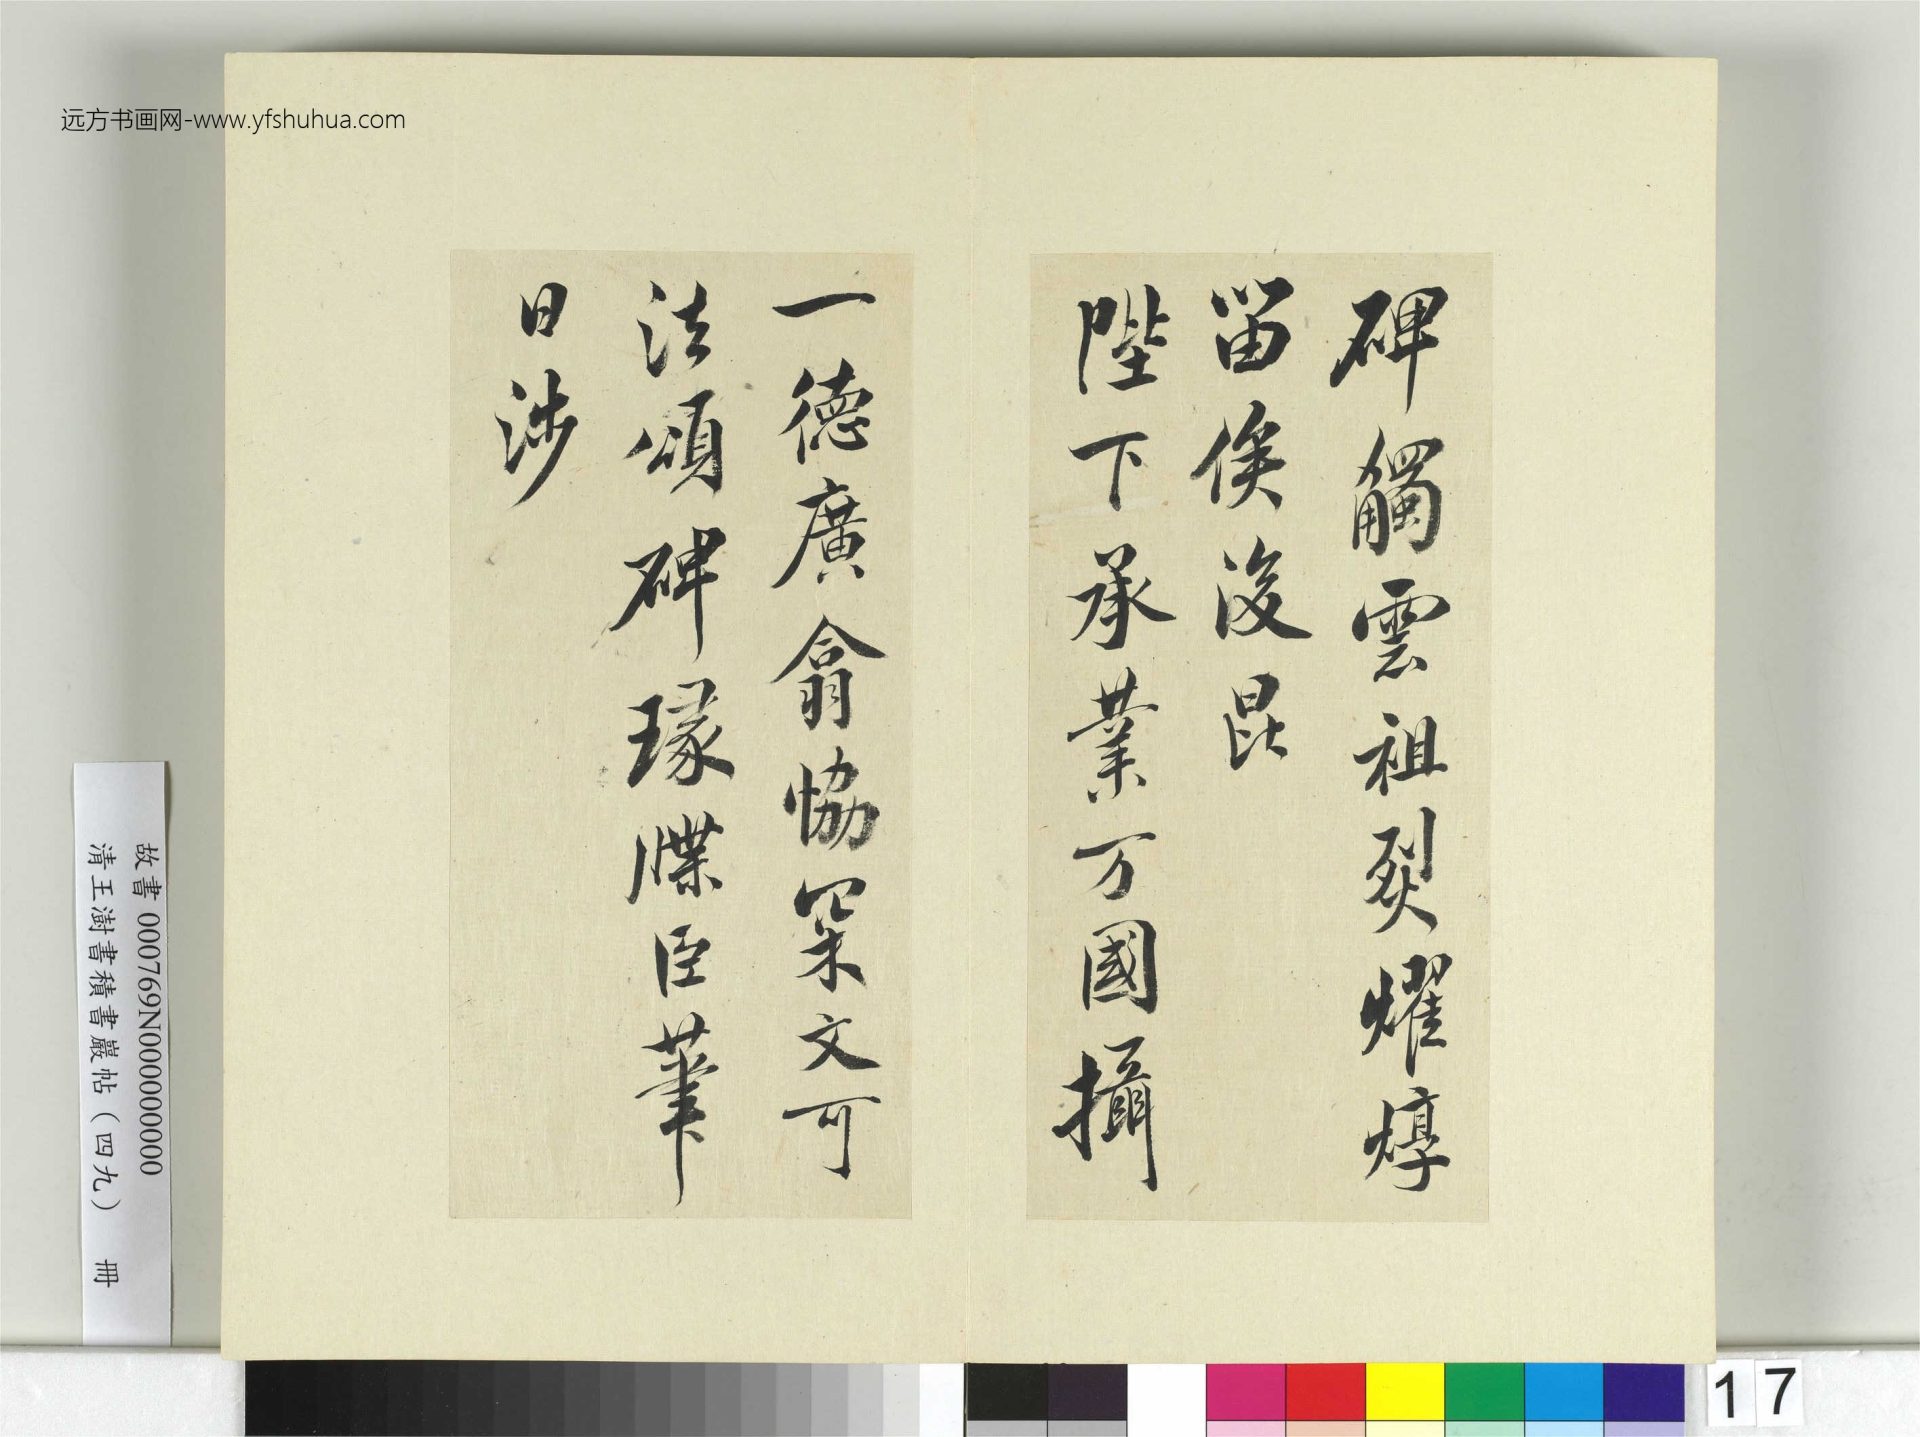 远方书画网-www.yfshuhua.com
碑觸雲祖烈耀焞
留侯後昆
陛下承業万國攝
一德廣翕恊罙文可
法頌碑瑑牒臣筆
日涉
故書 000769N000000000
清王澍書積書巖帖（四九） 冊
17